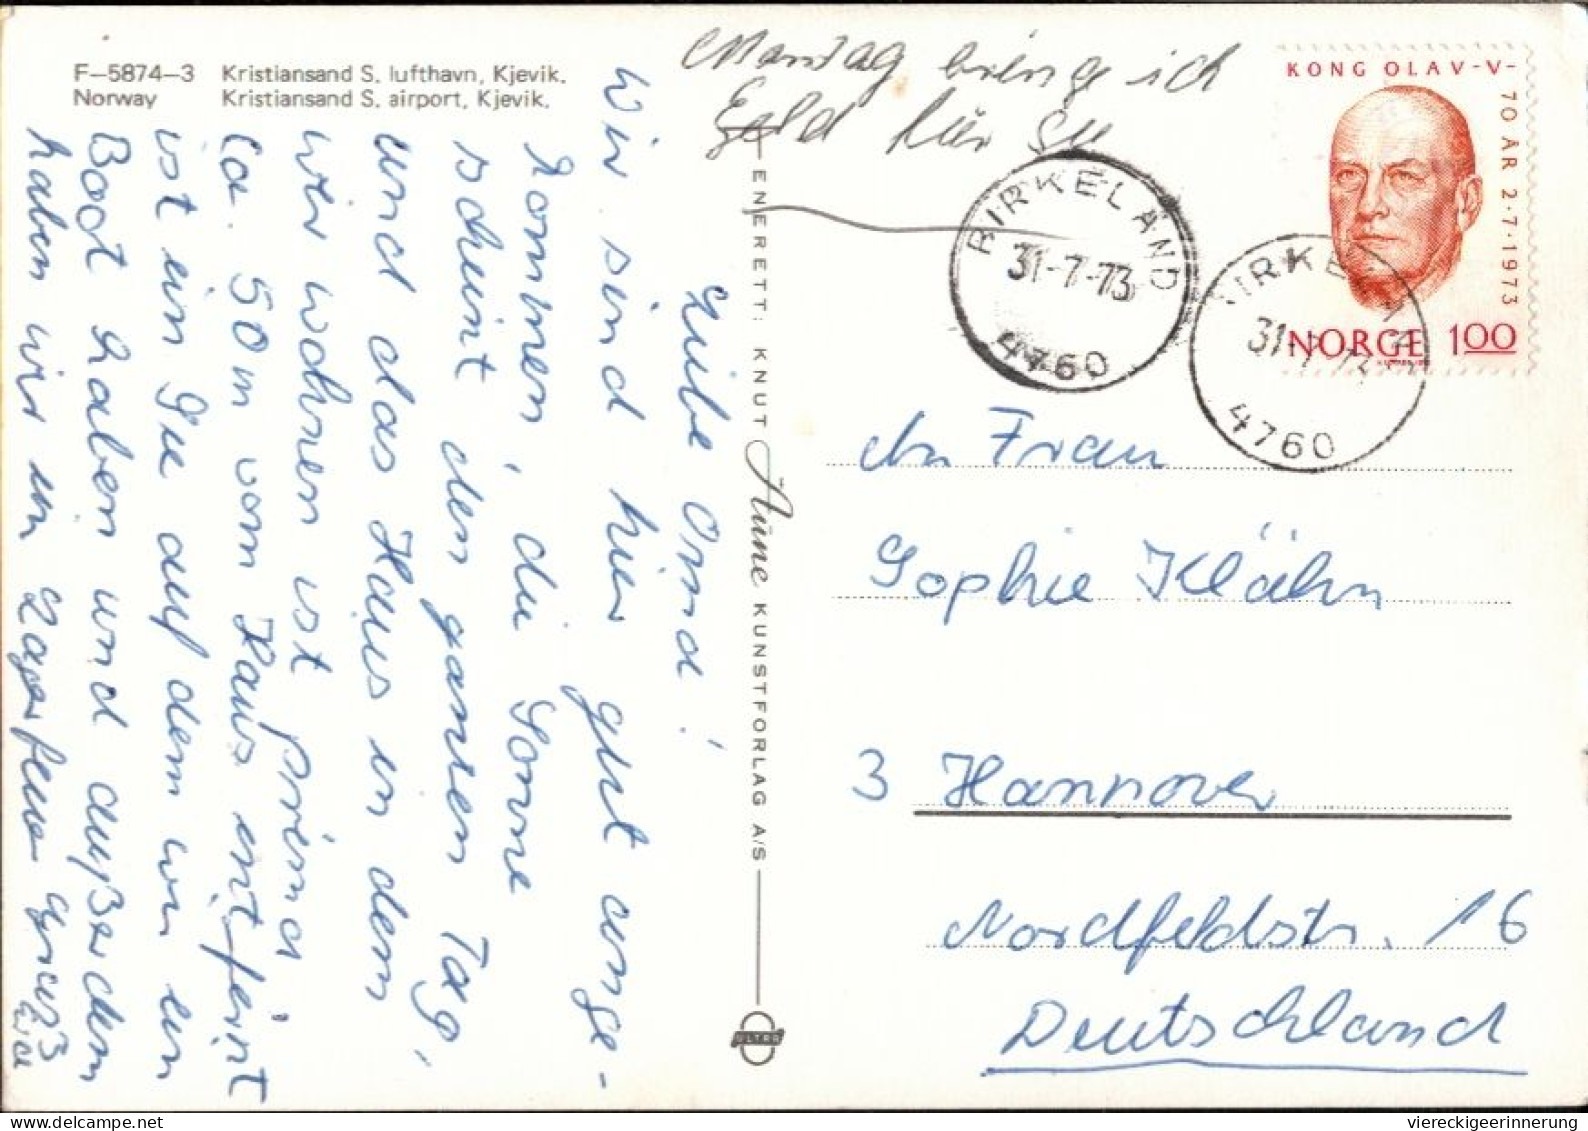 F-5874-3 Kristiansand S. lufthavn, Kjevik.
Norway Kristiansand S. airport, Kjevik.
Montag bringe ich
Geld für Su
Liebe Oma!
Wir sind hier gut ange-
kommen, die Sonne
scheint den ganzen Tag,
und das Haus in dem
wir wohnen ist prima
ca. 50 m vom Haus entfernt
ist ein See auf dem wir ein
Boot haben und außerdem
haben wir ein Lagerfeuer Gruß
ENERETT: KNUT Aune KUNSTFORLAG A/S
ULTRA
KONG OLAV-V-
70 ÅR 2·7·1973
NORGE 100
BIRKELAND
31-7-73
4760
BIRKELAND
31-7-73
4760
An Frau
Sophie Klähn
3 Hannover
Nordfeldstr. 16
Deutschland
viereckigeerinnerung